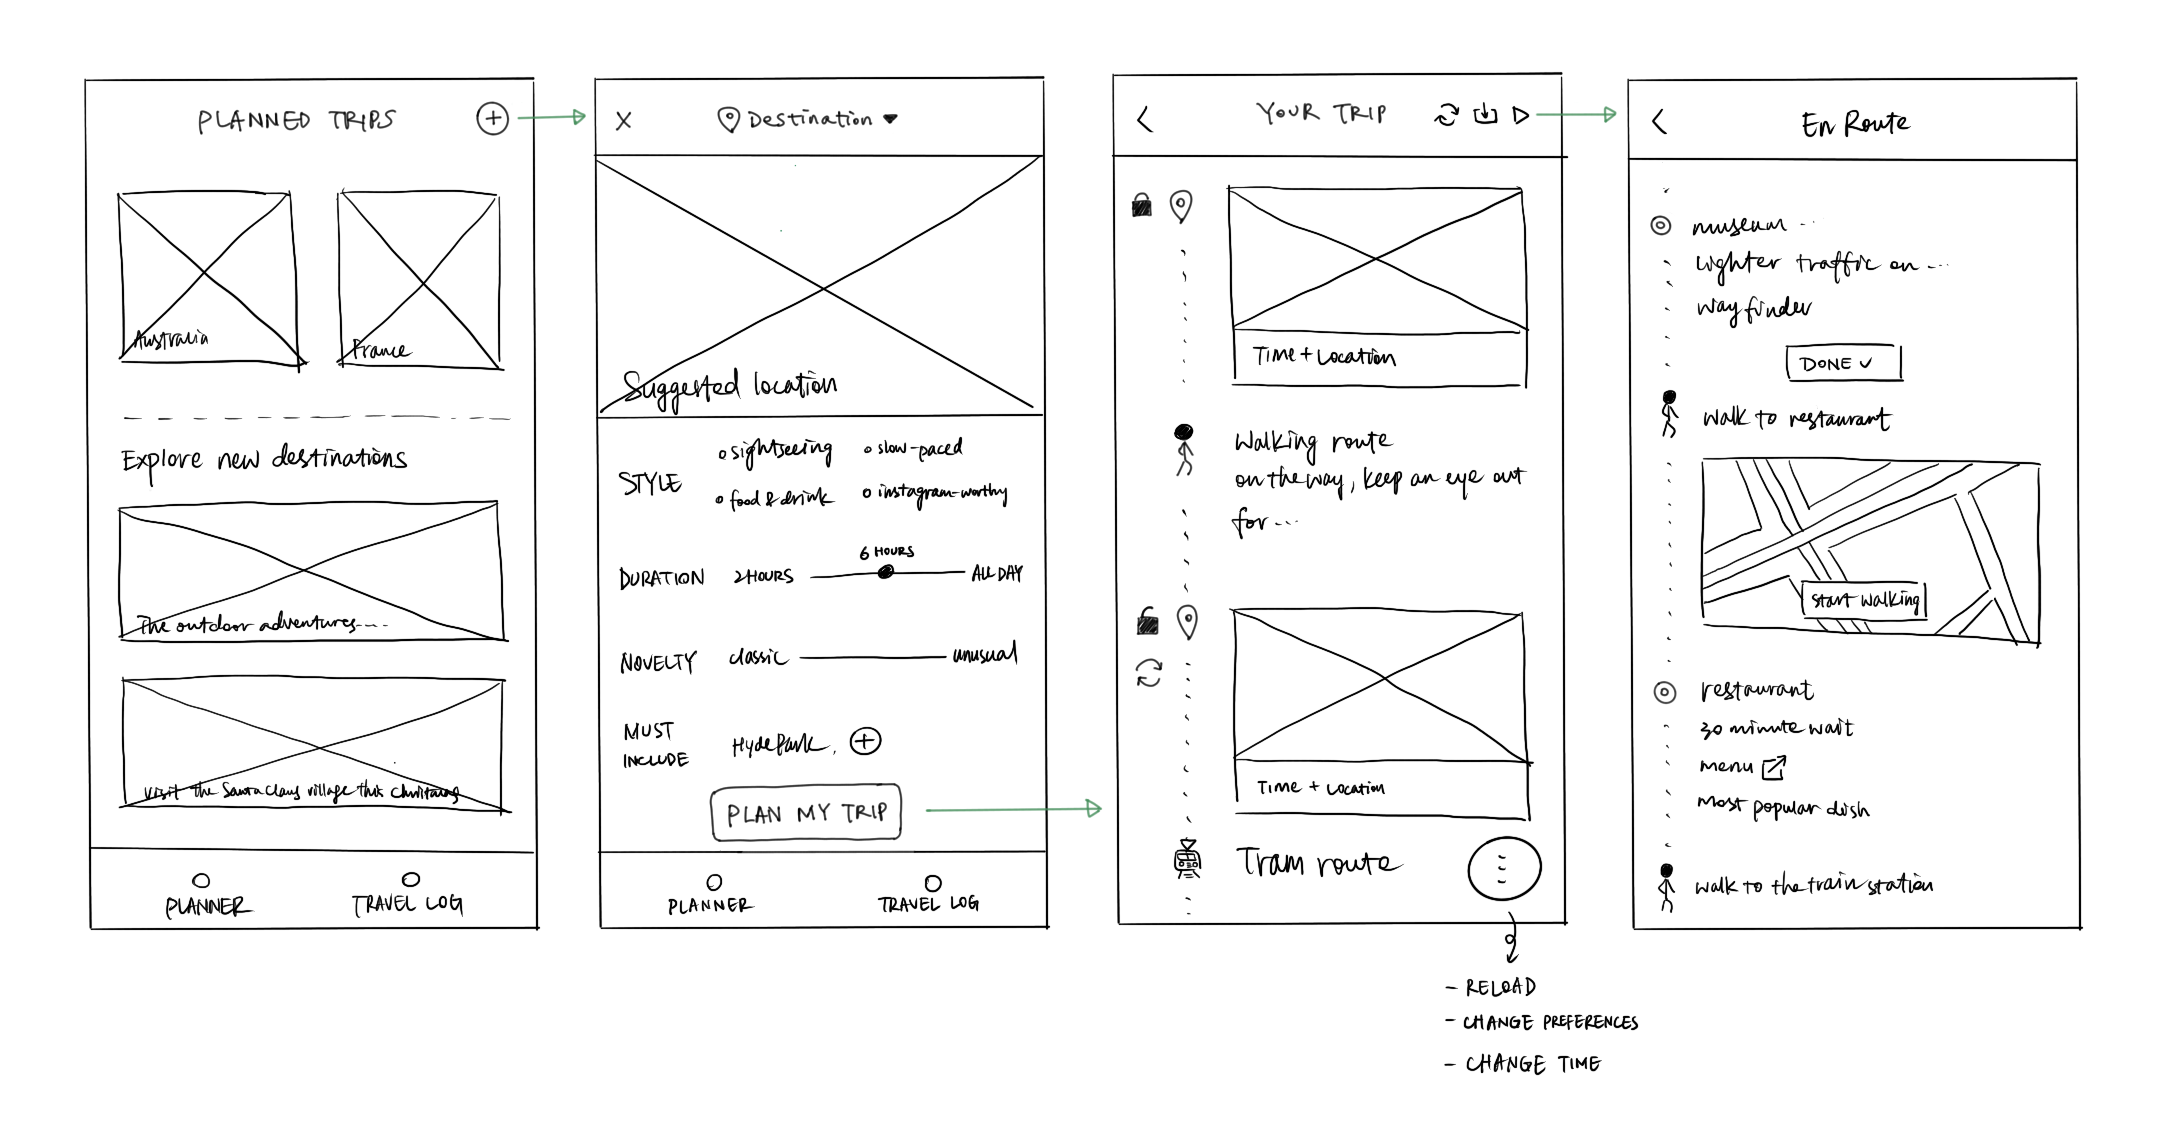 PLANNED TRIPS
Australia
France
Explore new destinations
The outdoor adventures----
Visit the Santa claus village this Christmas
PLANNER
TRAVEL LOG
X
Destination
Suggested location
STYLE
sightseeing
slow-paced
food & drink
instagram-worthy
6 HOURS
DURATION
2 HOURS
ALL DAY
NOVELTY
classic
unusual
MUST
INCLUDE
Hyde Park,
PLAN MY TRIP
PLANNER
TRAVEL LOG
YOUR TRIP
Time + Location
Walking route
on the way, keep an eye out
for ---
Time + Location
Tram route
- RELOAD
- CHANGE PREFERENCES
- CHANGE TIME
En Route
museum ...
lighter traffic on ---
way finder
DONE ✓
walk to restaurant
start walking
restaurant
30 minute wait
menu
most popular dish
walk to the train station